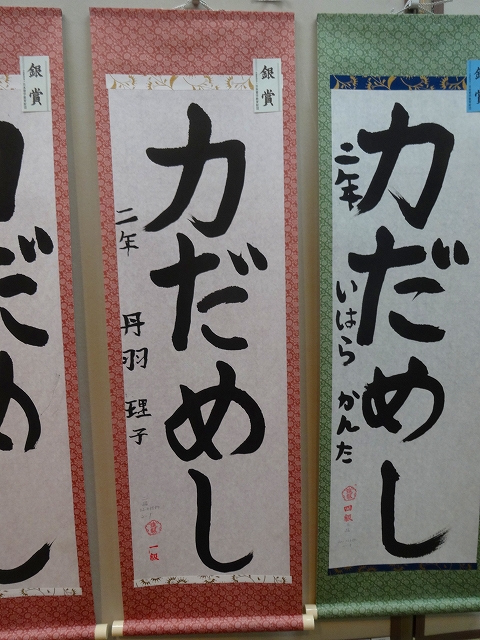 銀賞
力だめし
二年 いはら かんた
四級
銀賞
力だめし
二年 丹羽 理子
一級
銀賞
力だめし